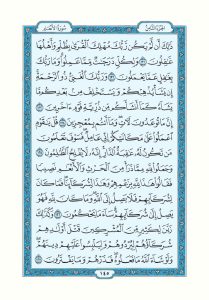 الجزء الثامن سورة الأنعام
ذَٰلِكَ أَن لَّمْ يَكُن رَّبُّكَ مُهْلِكَ ٱلْقُرَىٰ بِظُلْمٍ وَأَهْلُهَا
غَٰفِلُونَ ١٣١ وَلِكُلٍّ دَرَجَٰتٌ مِّمَّا عَمِلُوا۟ وَمَا رَبُّكَ
بِغَٰفِلٍ عَمَّا يَعْمَلُونَ ١٣٢ وَرَبُّكَ ٱلْغَنِىُّ ذُو ٱلرَّحْمَةِ
إِن يَشَأْ يُذْهِبْكُمْ وَيَسْتَخْلِفْ مِنۢ بَعْدِكُم مَّا
يَشَآءُ كَمَآ أَنشَأَكُم مِّن ذُرِّيَّةِ قَوْمٍ ءَاخَرِينَ ١٣٣
إِنَّ مَا تُوعَدُونَ لَءَاتٍ وَمَآ أَنتُم بِمُعْجِزِينَ ١٣٤ قُلْ يَٰقَوْمِ
ٱعْمَلُوا۟ عَلَىٰ مَكَانَتِكُمْ إِنِّى عَامِلٌ فَسَوْفَ تَعْلَمُونَ
مَن تَكُونُ لَهُۥ عَٰقِبَةُ ٱلدَّارِ إِنَّهُۥ لَا يُفْلِحُ ٱلظَّٰلِمُونَ ١٣٥
وَجَعَلُوا۟ لِلَّهِ مِمَّا ذَرَأَ مِنَ ٱلْحَرْثِ وَٱلْأَنْعَٰمِ نَصِيبًا
فَقَالُوا۟ هَٰذَا لِلَّهِ بِزَعْمِهِمْ وَهَٰذَا لِشُرَكَآئِنَا فَمَا كَانَ
لِشُرَكَآئِهِمْ فَلَا يَصِلُ إِلَى ٱللَّهِ وَمَا كَانَ لِلَّهِ فَهُوَ
يَصِلُ إِلَىٰ شُرَكَآئِهِمْ سَآءَ مَا يَحْكُمُونَ ١٣٦ وَكَذَٰلِكَ
زَيَّنَ لِكَثِيرٍ مِّنَ ٱلْمُشْرِكِينَ قَتْلَ أَوْلَٰدِهِمْ
شُرَكَآؤُهُمْ لِيُرْدُوهُمْ وَلِيَلْبِسُوا۟ عَلَيْهِمْ دِينَهُمْ
وَلَوْ شَآءَ ٱللَّهُ مَا فَعَلُوهُ فَذَرْهُمْ وَمَا يَفْتَرُونَ ١٣٧
١٤٥